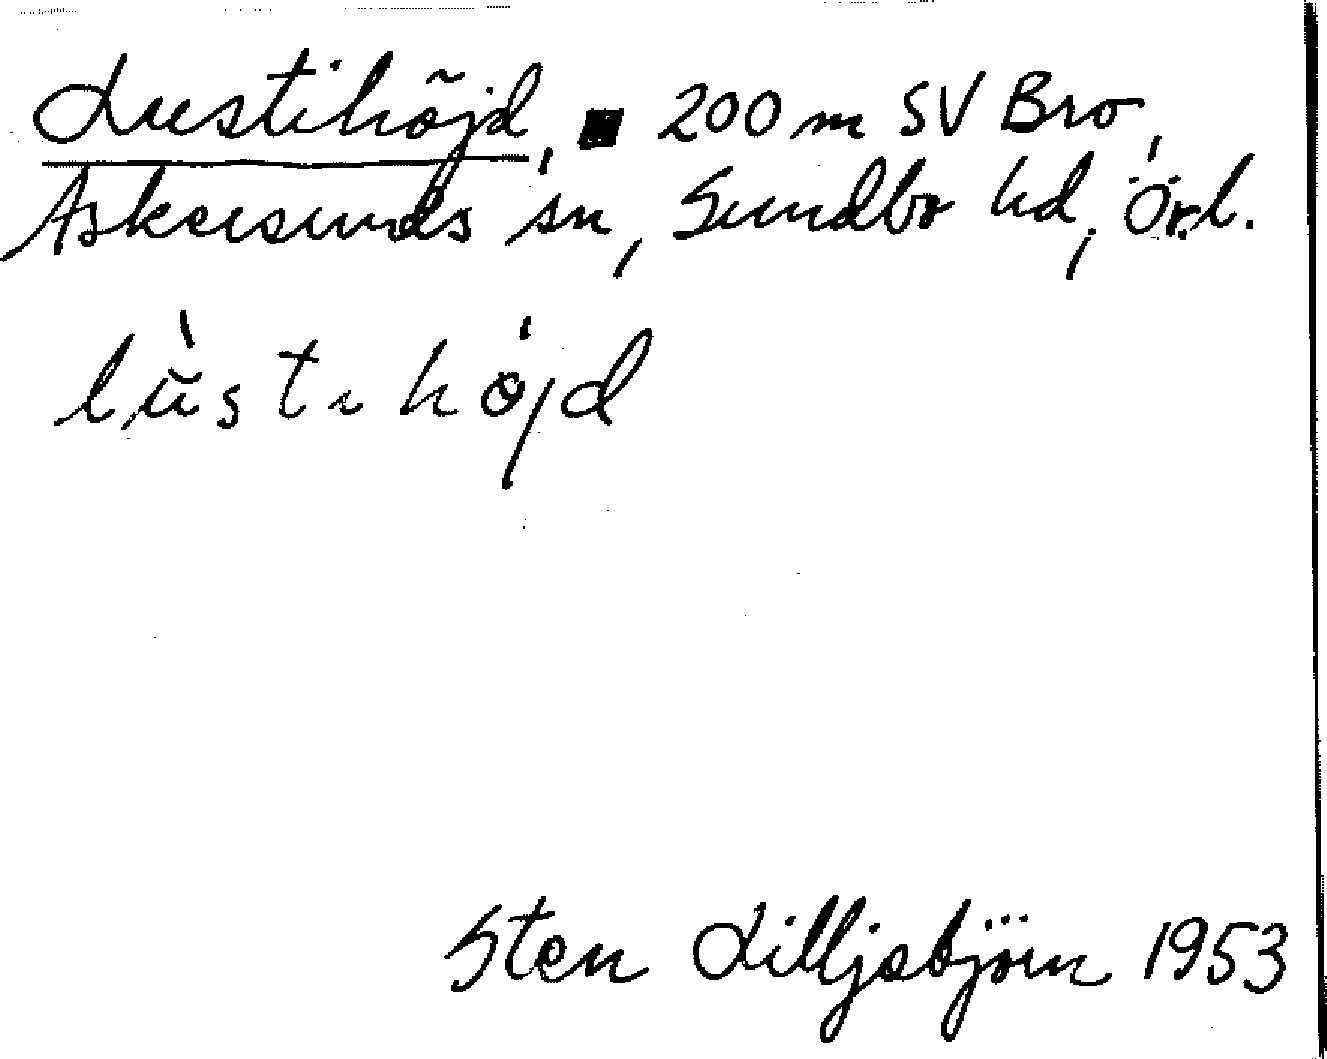 Lustihöjd, ■ 200 m SV Bro,
Askersunds sn, Sundbo hd, Örl.
lùstihöjd
Sten Lilljebjörn 1953